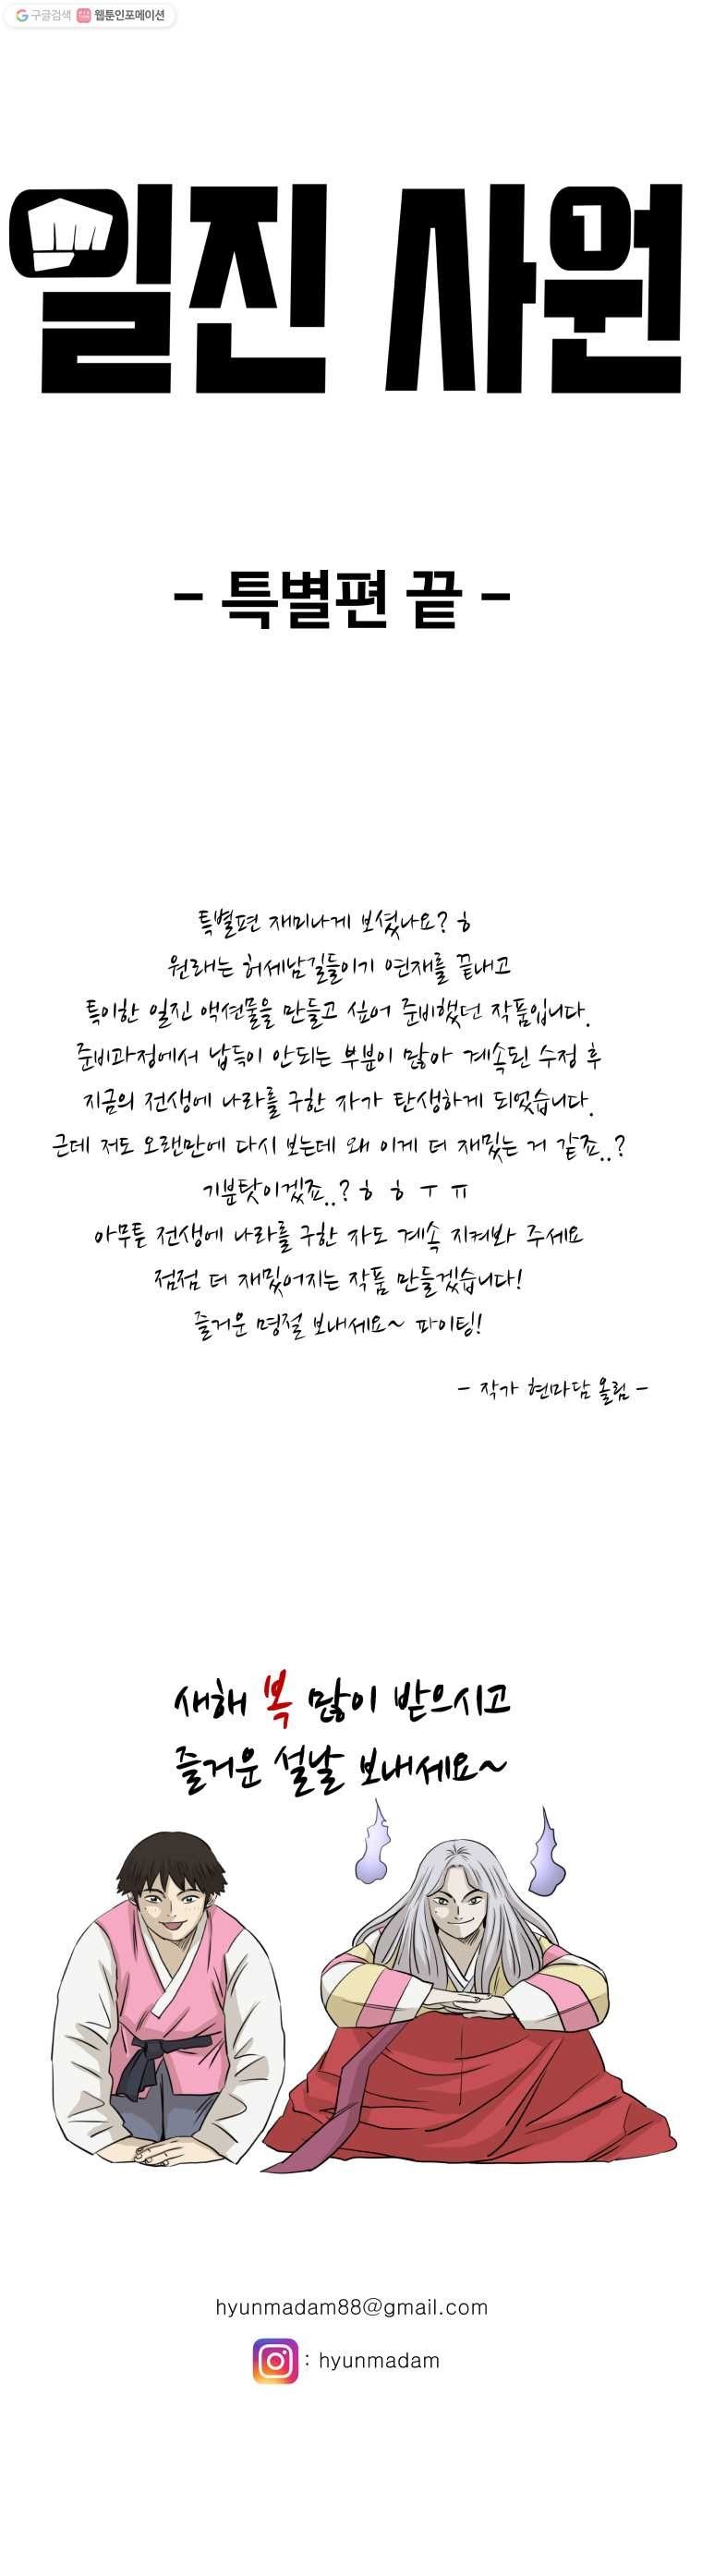 구글검색 웹툰인포메이션
일진 사원
- 특별편 끝 -
특별편 재미나게 보셨나요? ㅎ
원래는 허세남길들이기 연재를 끝내고
특이한 일진 액션물을 만들고 싶어 준비했던 작품입니다.
준비과정에서 납득이 안되는 부분이 많아 계속된 수정 후
지금의 전생에 나라를 구한 자가 탄생하게 되었습니다.
근데 저도 오랜만에 다시 보는데 왜 이게 더 재밌는 거 같죠..?
기분탓이겠죠..? ㅎ ㅎ ㅜ ㅠ
아무튼 전생에 나라를 구한 자도 계속 지켜봐 주세요
점점 더 재밌어지는 작품 만들겠습니다!
즐거운 명절 보내세요~ 파이팅!
- 작가 현마담 올림 -
새해 복 많이 받으시고
즐거운 설날 보내세요~
hyunmadam88@gmail.com
: hyunmadam